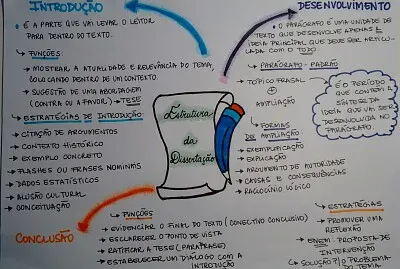 INTRODUÇÃO
É A PARTE QUE VAI LEVAR O LEITOR
PARA DENTRO DO TEXTO.
FUNÇÕES:
MOSTRAR A ATUALIDADE E RELEVÂNCIA DO TEMA,
COLOCANDO DENTRO DE UM CONTEXTO.
SUGESTÃO DE UMA ABORDAGEM
(CONTRA OU A FAVOR) → TESE
ESTRATÉGIAS DE INTRODUÇÃO:
CITAÇÃO DE ARGUMENTOS
CONTEXTO HISTÓRICO
EXEMPLO CONCRETO
FLASHES OU FRASES NOMINAIS
DADOS ESTATÍSTICOS
ALUSÃO CULTURAL
CONCEITUAÇÃO
Estrutura
da
Dissertação
DESENVOLVIMENTO
O PARÁGRAFO É UMA UNIDADE DE
TEXTO QUE DESENVOLVE APENAS 1
IDEIA PRINCIPAL QUE DEVE SER ARTICU-
LADA COM O TODO
PARÁGRAFO - PADRÃO
TÓPICO FRASAL
+
AMPLIAÇÃO
É O PERÍODO
QUE CONTÉM A
SÍNTESE DA
IDEIA QUE VAI SER
DESENVOLVIDA NO
PARÁGRAFO.
FORMAS
DE AMPLIAÇÃO
EXEMPLIFICAÇÃO
EXPLICAÇÃO
ARGUMENTO DE AUTORIDADE
CAUSAS E CONSEQUÊNCIAS
RACIOCÍNIO LÓGICO
CONCLUSÃO
FUNÇÕES:
EVIDENCIAR O FINAL DO TEXTO (CONECTIVO CONCLUSIVO)
ESCLARECER O PONTO DE VISTA
RATIFICAR A TESE (PARÁFRASE)
ESTABELECER UM DIÁLOGO COM A
INTRODUÇÃO
ESTRATÉGIAS
PROMOVER UMA
REFLEXÃO
ENEM: PROPOSTA DE
INTERVENÇÃO
SOLUÇÃO P/ O PROBLEMA
DO TEMA